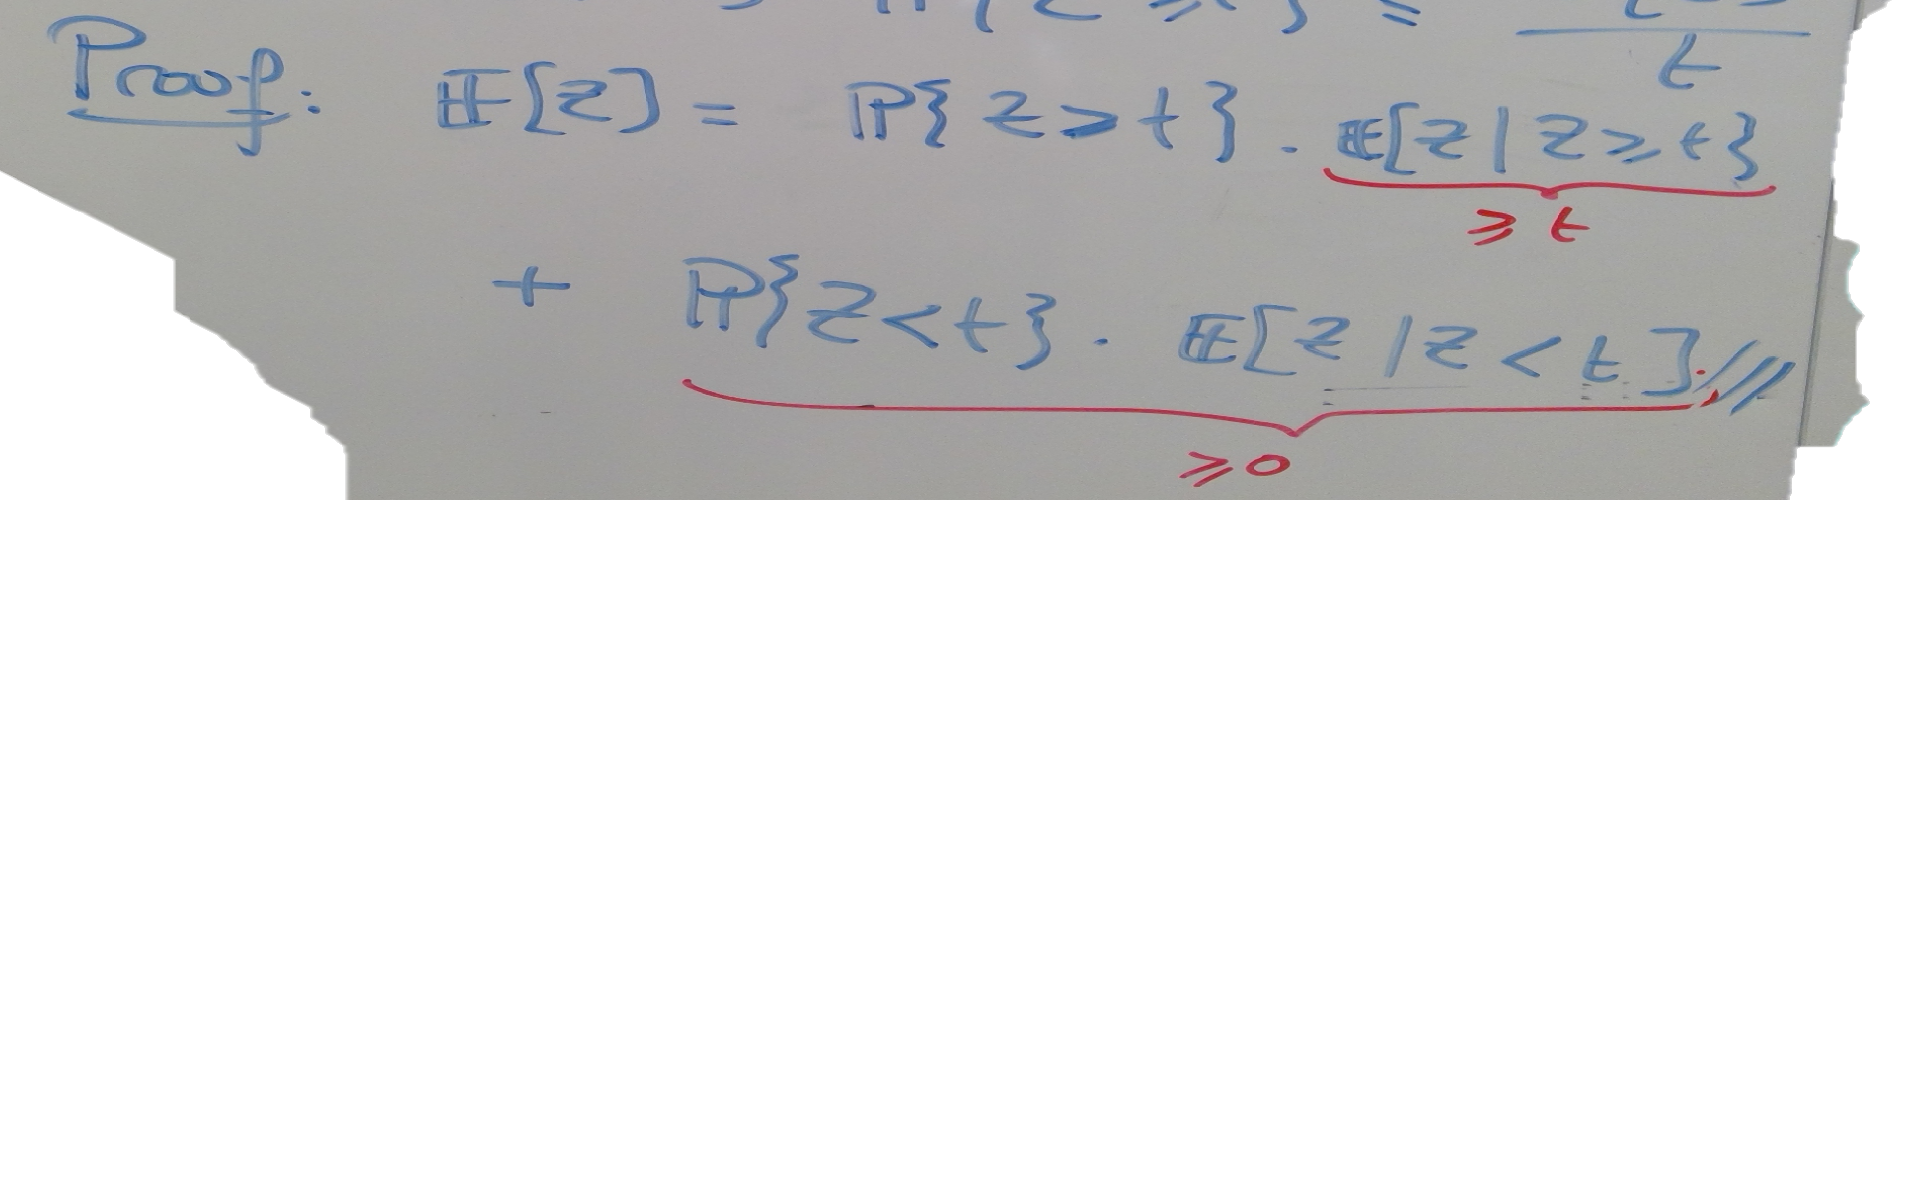 t
Proof: 𝔼[Z] = ℙ{Z>t} · 𝔼[Z|Z⩾t}
⩾ t
+ ℙ{Z<t} · 𝔼[Z|Z<t]. ///
⩾0